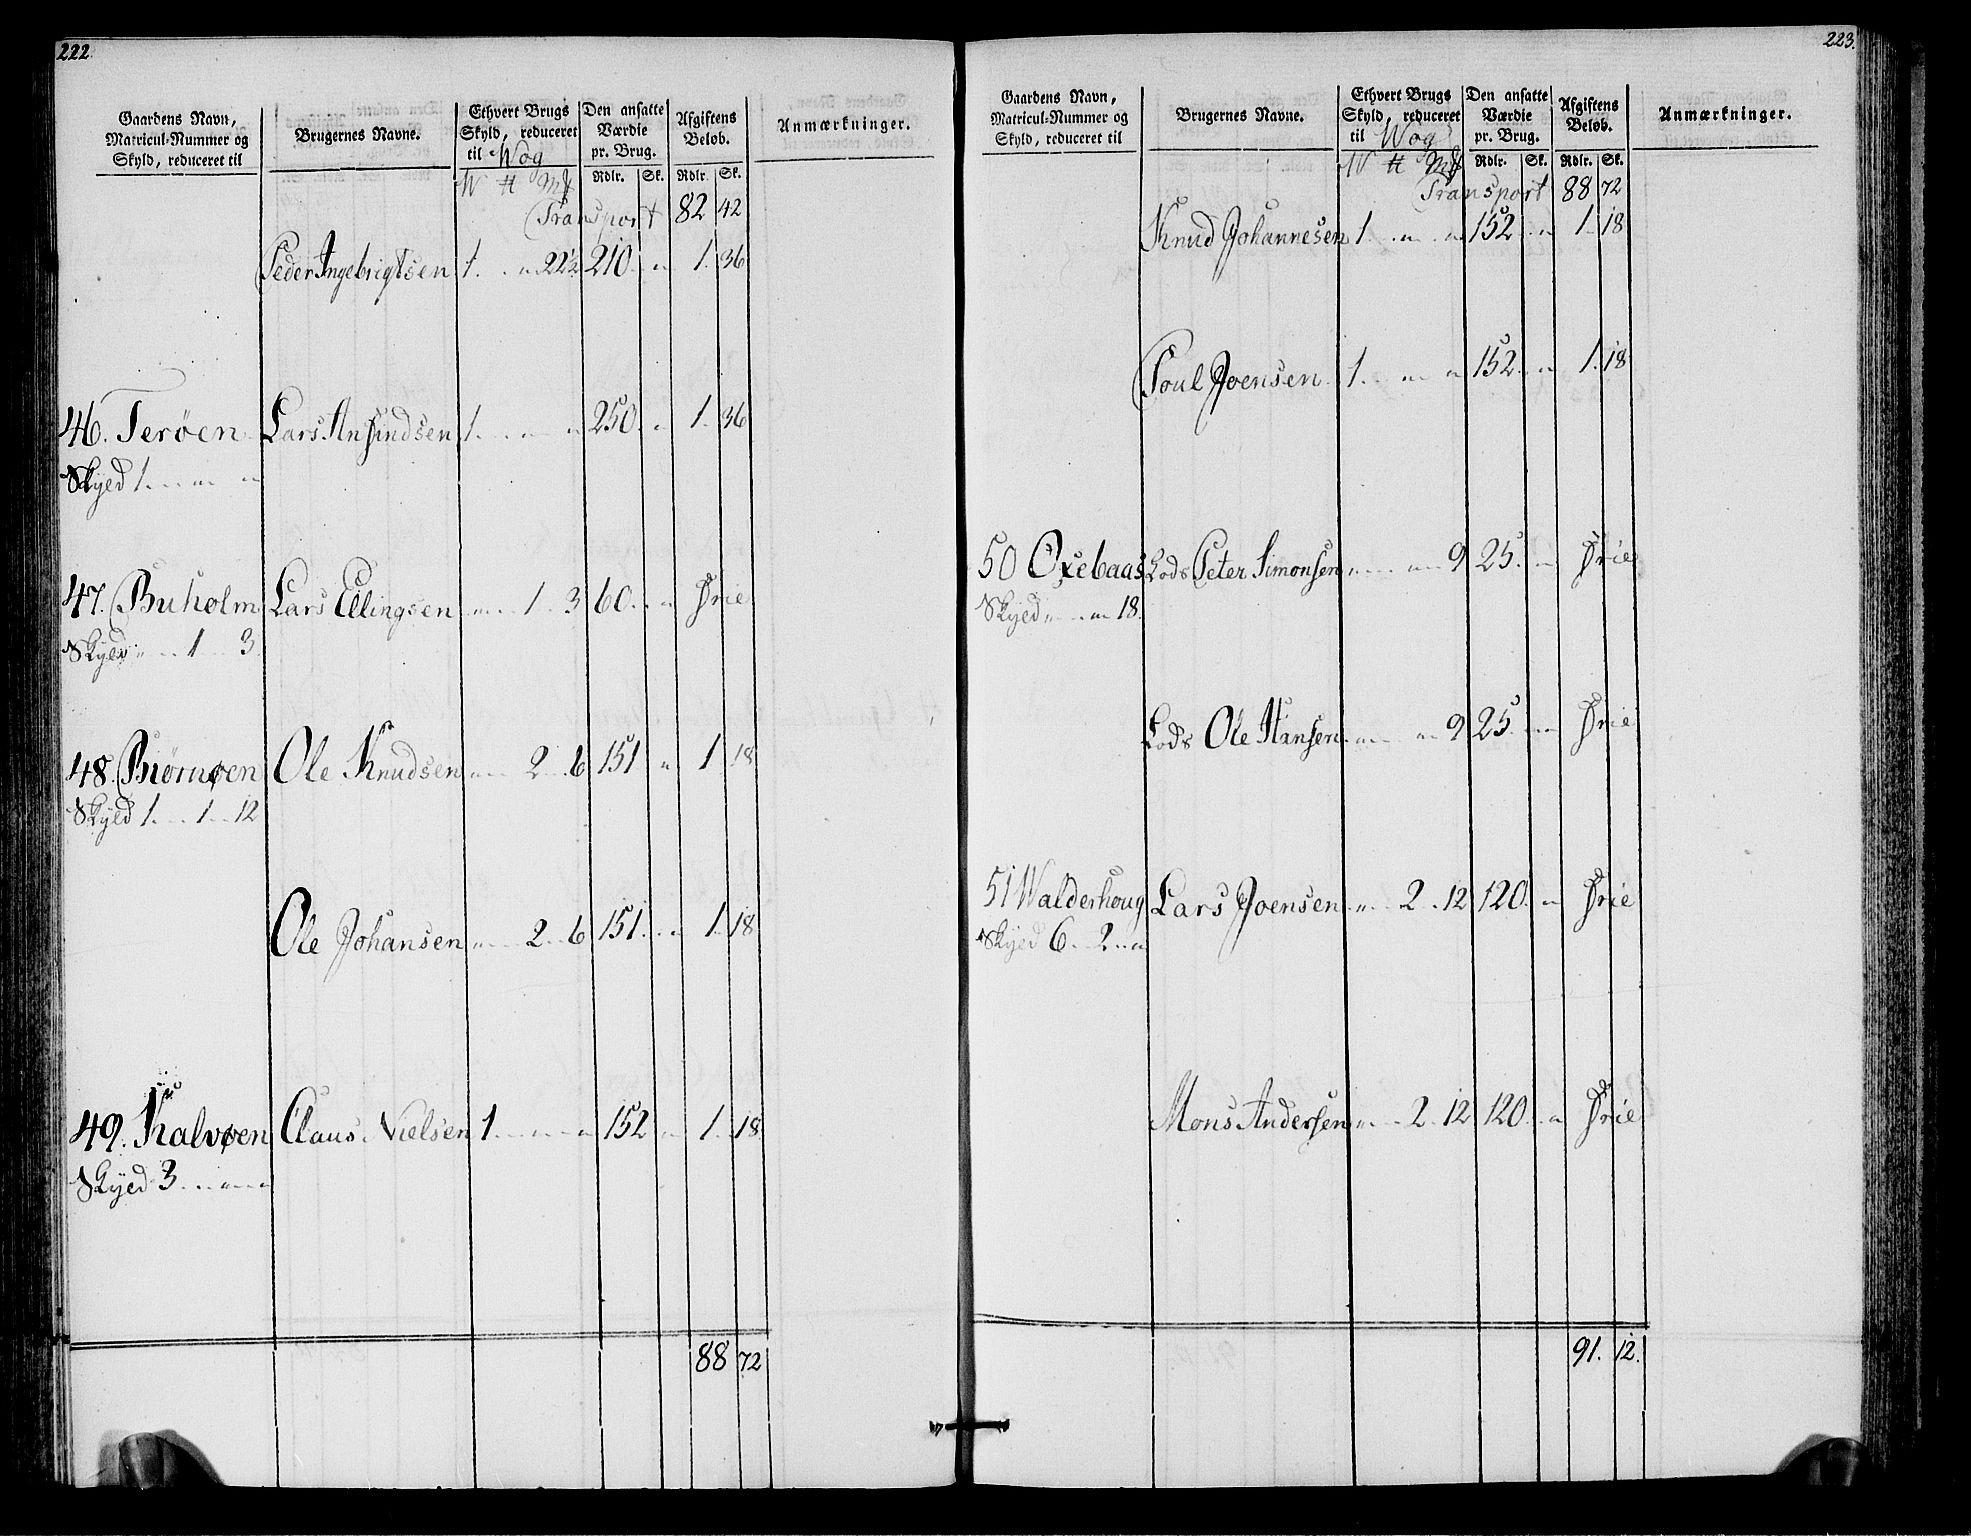 222.
Gaardens Navn, Matricul-Nummer og Skyld, reduceret til
Brugernes Navne.
Ethvert Brugs Skyld, reduceret til Wog
Den ansatte Værdie pr. Brug.
Afgiftens Beløb.
Anmærkninger.
Rdlr. Sk. Rdlr. Sk.
Transport 82 42
Peder Ingebrigtsen 1. . " 22½ 210. " 1. 36
46. Terøen Lars Anfindsen 1. . " . " 250. " 1. 36
Skyld 1. . . " . "
47. Buholm Lars Ellingsen " . . 1 . 3 60. . " Frie
Skyld " . . 1 . . 3
48. Biørnøen Ole Knudsen " . . 2 . . 6 151 " 1 18
Skyld 1. . . 1 . . 12
Ole Johansen " . . 2 . . 6 151. . " 1. 18
49. Kalvøen Claus Nielsen 1. . . " . . " 152 " 1. 18
Skyld 3. . . " . . "
88 72
223.
Gaardens Navn, Matricul-Nummer og Skyld, reduceret til
Brugernes Navne.
Ethvert Brugs Skyld, reduceret til Wog
Den ansatte Værdie pr. Brug.
Afgiftens Beløb.
Anmærkninger.
Rdlr. Sk. Rdlr. Sk.
Transport 88 72
Knud Johannesen 1. . " . . " 152. . " 1. 18
Poul Joensen 1. . " . " 152. . " 1. 18
50 Oxebaas Lods Peter Simonsen " . . . " 9 25. . " Frie
Skyld " . . " 18.
Lods Ole Hansen " . . . " 9 25. . " Frie
51 Walderhoug Lars Joensen " . . 2 . . 12 120. " Frie
Skyld 6. . 2 . . "
Mons Andersen " . . 2 . 12 120. . " Frie
91. 12.